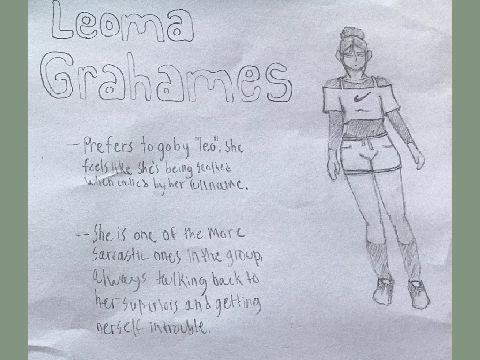 Leoma
Grahames
- Prefers to go by "leo", she
feels like she's being scolded
when called by her fullname.
-- She is one of the more
sarcastic ones in the group,
always talking back to
her superiors and getting
herself in trouble.